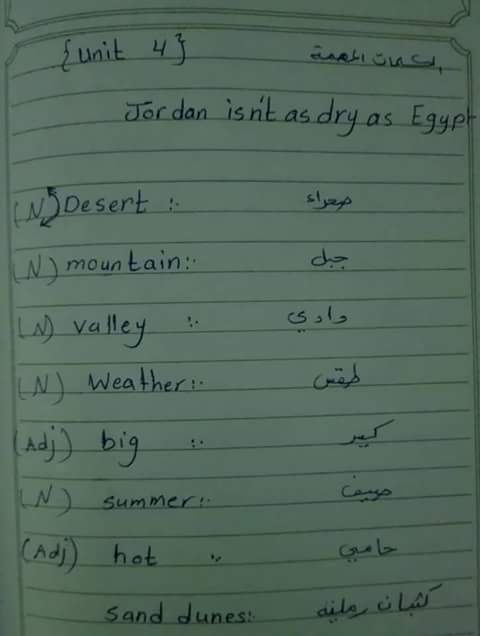 {unit 4} الكلمات المهمة
Jordan isn't as dry as Egypt
(N) Desert :. صحراء
(N) mountain:. جبل
(N) valley :. وادي
(N) Weather:. طقس
(Adj) big :. كبير
(N) summer:. صيف
(Adj) hot :. حامي
sand dunes:. كثبان رملية